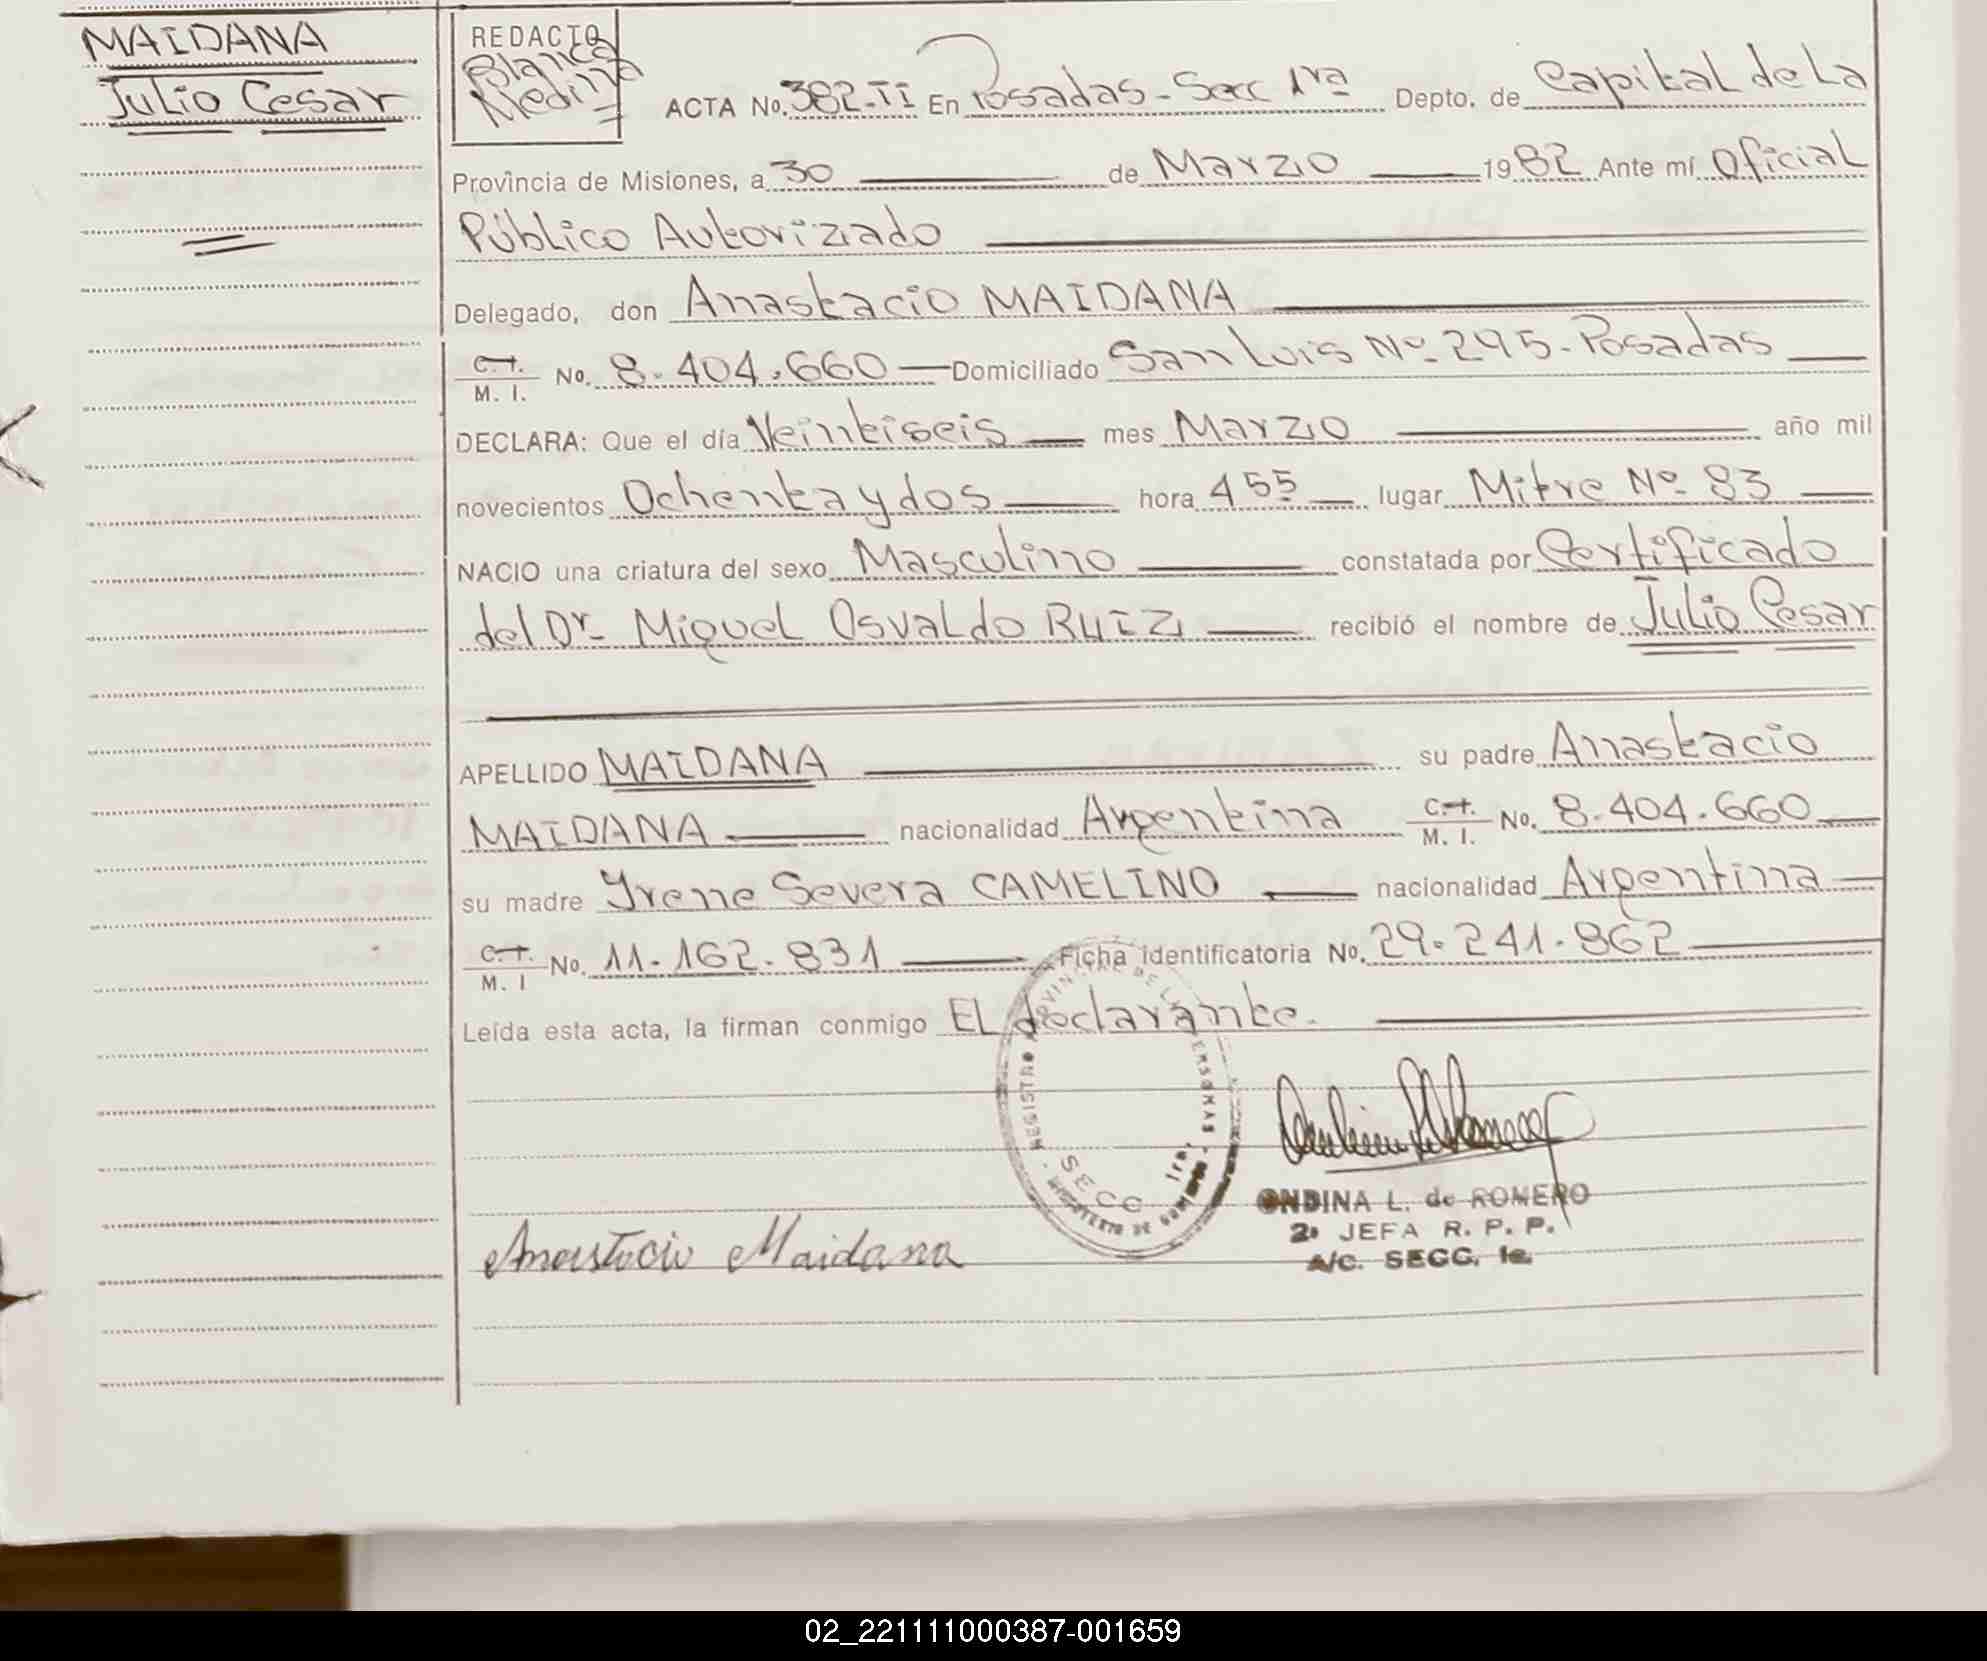 MAIDANA
Julio Cesar
REDACTO
Blanca
Medina
ACTA No. 382-TI En Posadas - Secc 1ra Depto. de Capital de La
Provincia de Misiones, a 30 de Marzo 1982 Ante mí Oficial
Público Autorizado
Delegado, don Anastacio MAIDANA
C.I. M. I. No. 8.404.660 — Domiciliado San Luis Nº 295 - Posadas
DECLARA: Que el día Veintiseis mes Marzo año mil
novecientos Ochenta y dos hora 4 55 lugar Mitre Nº 83
NACIO una criatura del sexo Masculino constatada por Certificado
del Dr. Miguel Osvaldo RUIZ recibió el nombre de Julio Cesar
APELLIDO MAIDANA su padre Anastacio
MAIDANA nacionalidad Argentina C.I. M. I. No. 8.404.660
su madre Yrene Severa CAMELINO nacionalidad Argentina
C.I. M. I No. 11.162.831 Ficha identificatoria No. 29.241.862
Leída esta acta, la firman conmigo EL declarante.
REGISTRO PROVINCIAL DE LAS PERSONAS
SECC 1ra.
MINISTERIO DE GOBIERNO
Anastacio Maidana
ONDINA L. de ROMERO
2ª JEFA R. P. P.
A/C. SECC. 1a.
02_221111000387-001659